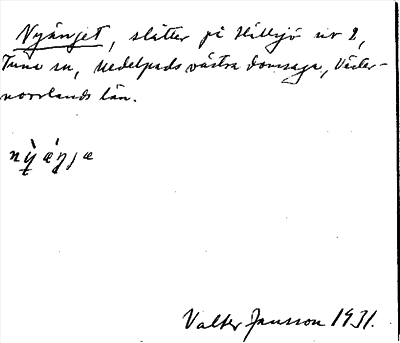 Nyänget, slåtter på Hällsjö nr 2,
Tuna sn, Medelpads västra domsaga, Väster-
norrlands län.
nỳ̵ æ̀ŋjæ
Valter Jansson 1931.